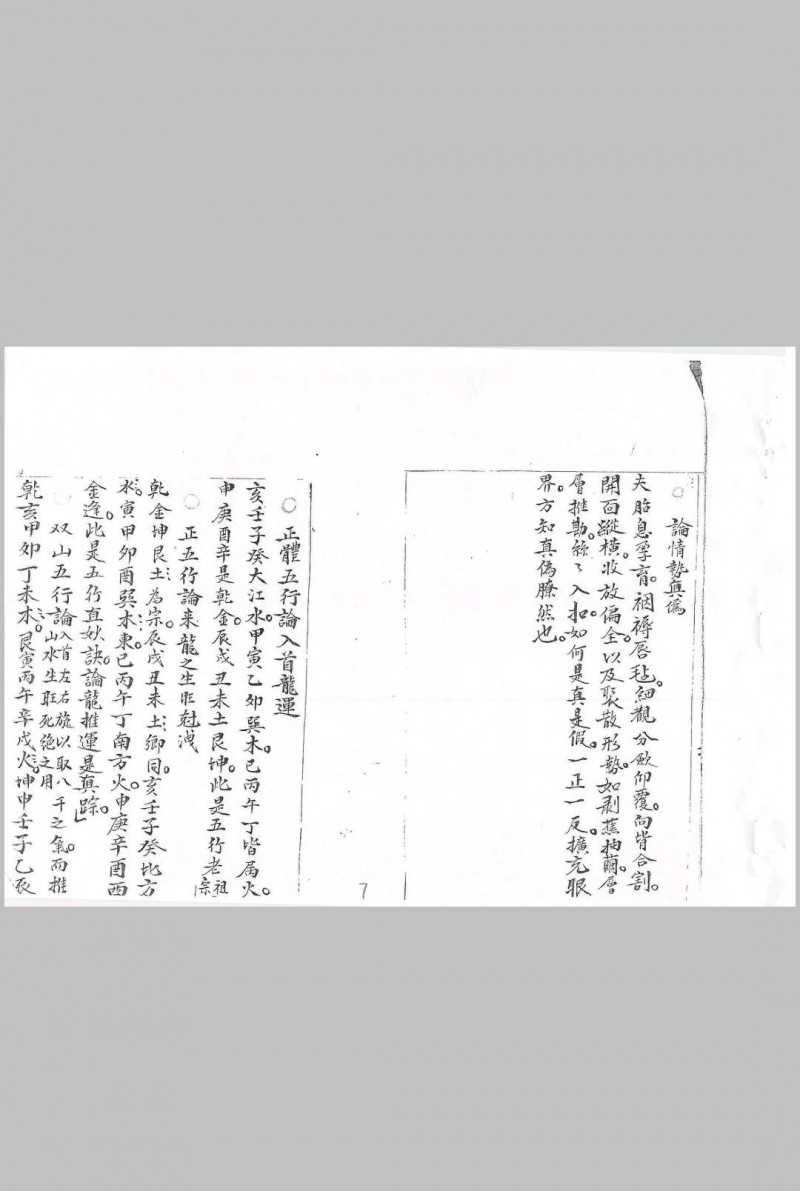 ○論情勢真偽
夫胎息孕育。裀褥唇毡。細觀分歛仰覆。向背合割。
開面縱橫。收放偏全。以及聚散形勢。如剥蕉抽繭。層
層推勘。絲〻入扣。如何是真是假。一正一反。擴充眼
界。方知真偽瞭然也。
○正體五行論入首龍運
亥壬子癸大江水。甲寅乙卯巽木。巳丙午丁皆属火。
申庚酉辛是乾金。辰戌丑未土艮坤。此是五行老祖宗
○正五行論來龍之生旺尅洩
乾金坤艮土為宗。辰戌丑未土鄉同。亥壬子癸北方
水。寅甲卯酉巽木東。巳丙午丁南方火。申庚辛酉西
金逢。此是五行直妙訣。論龍推運是真踪。
○双山五行論入首左右旋以取八干之氣。而推山水生旺死絶之用
乾亥甲卯丁未木。艮寅丙午辛戌火。坤申壬子乙辰
7